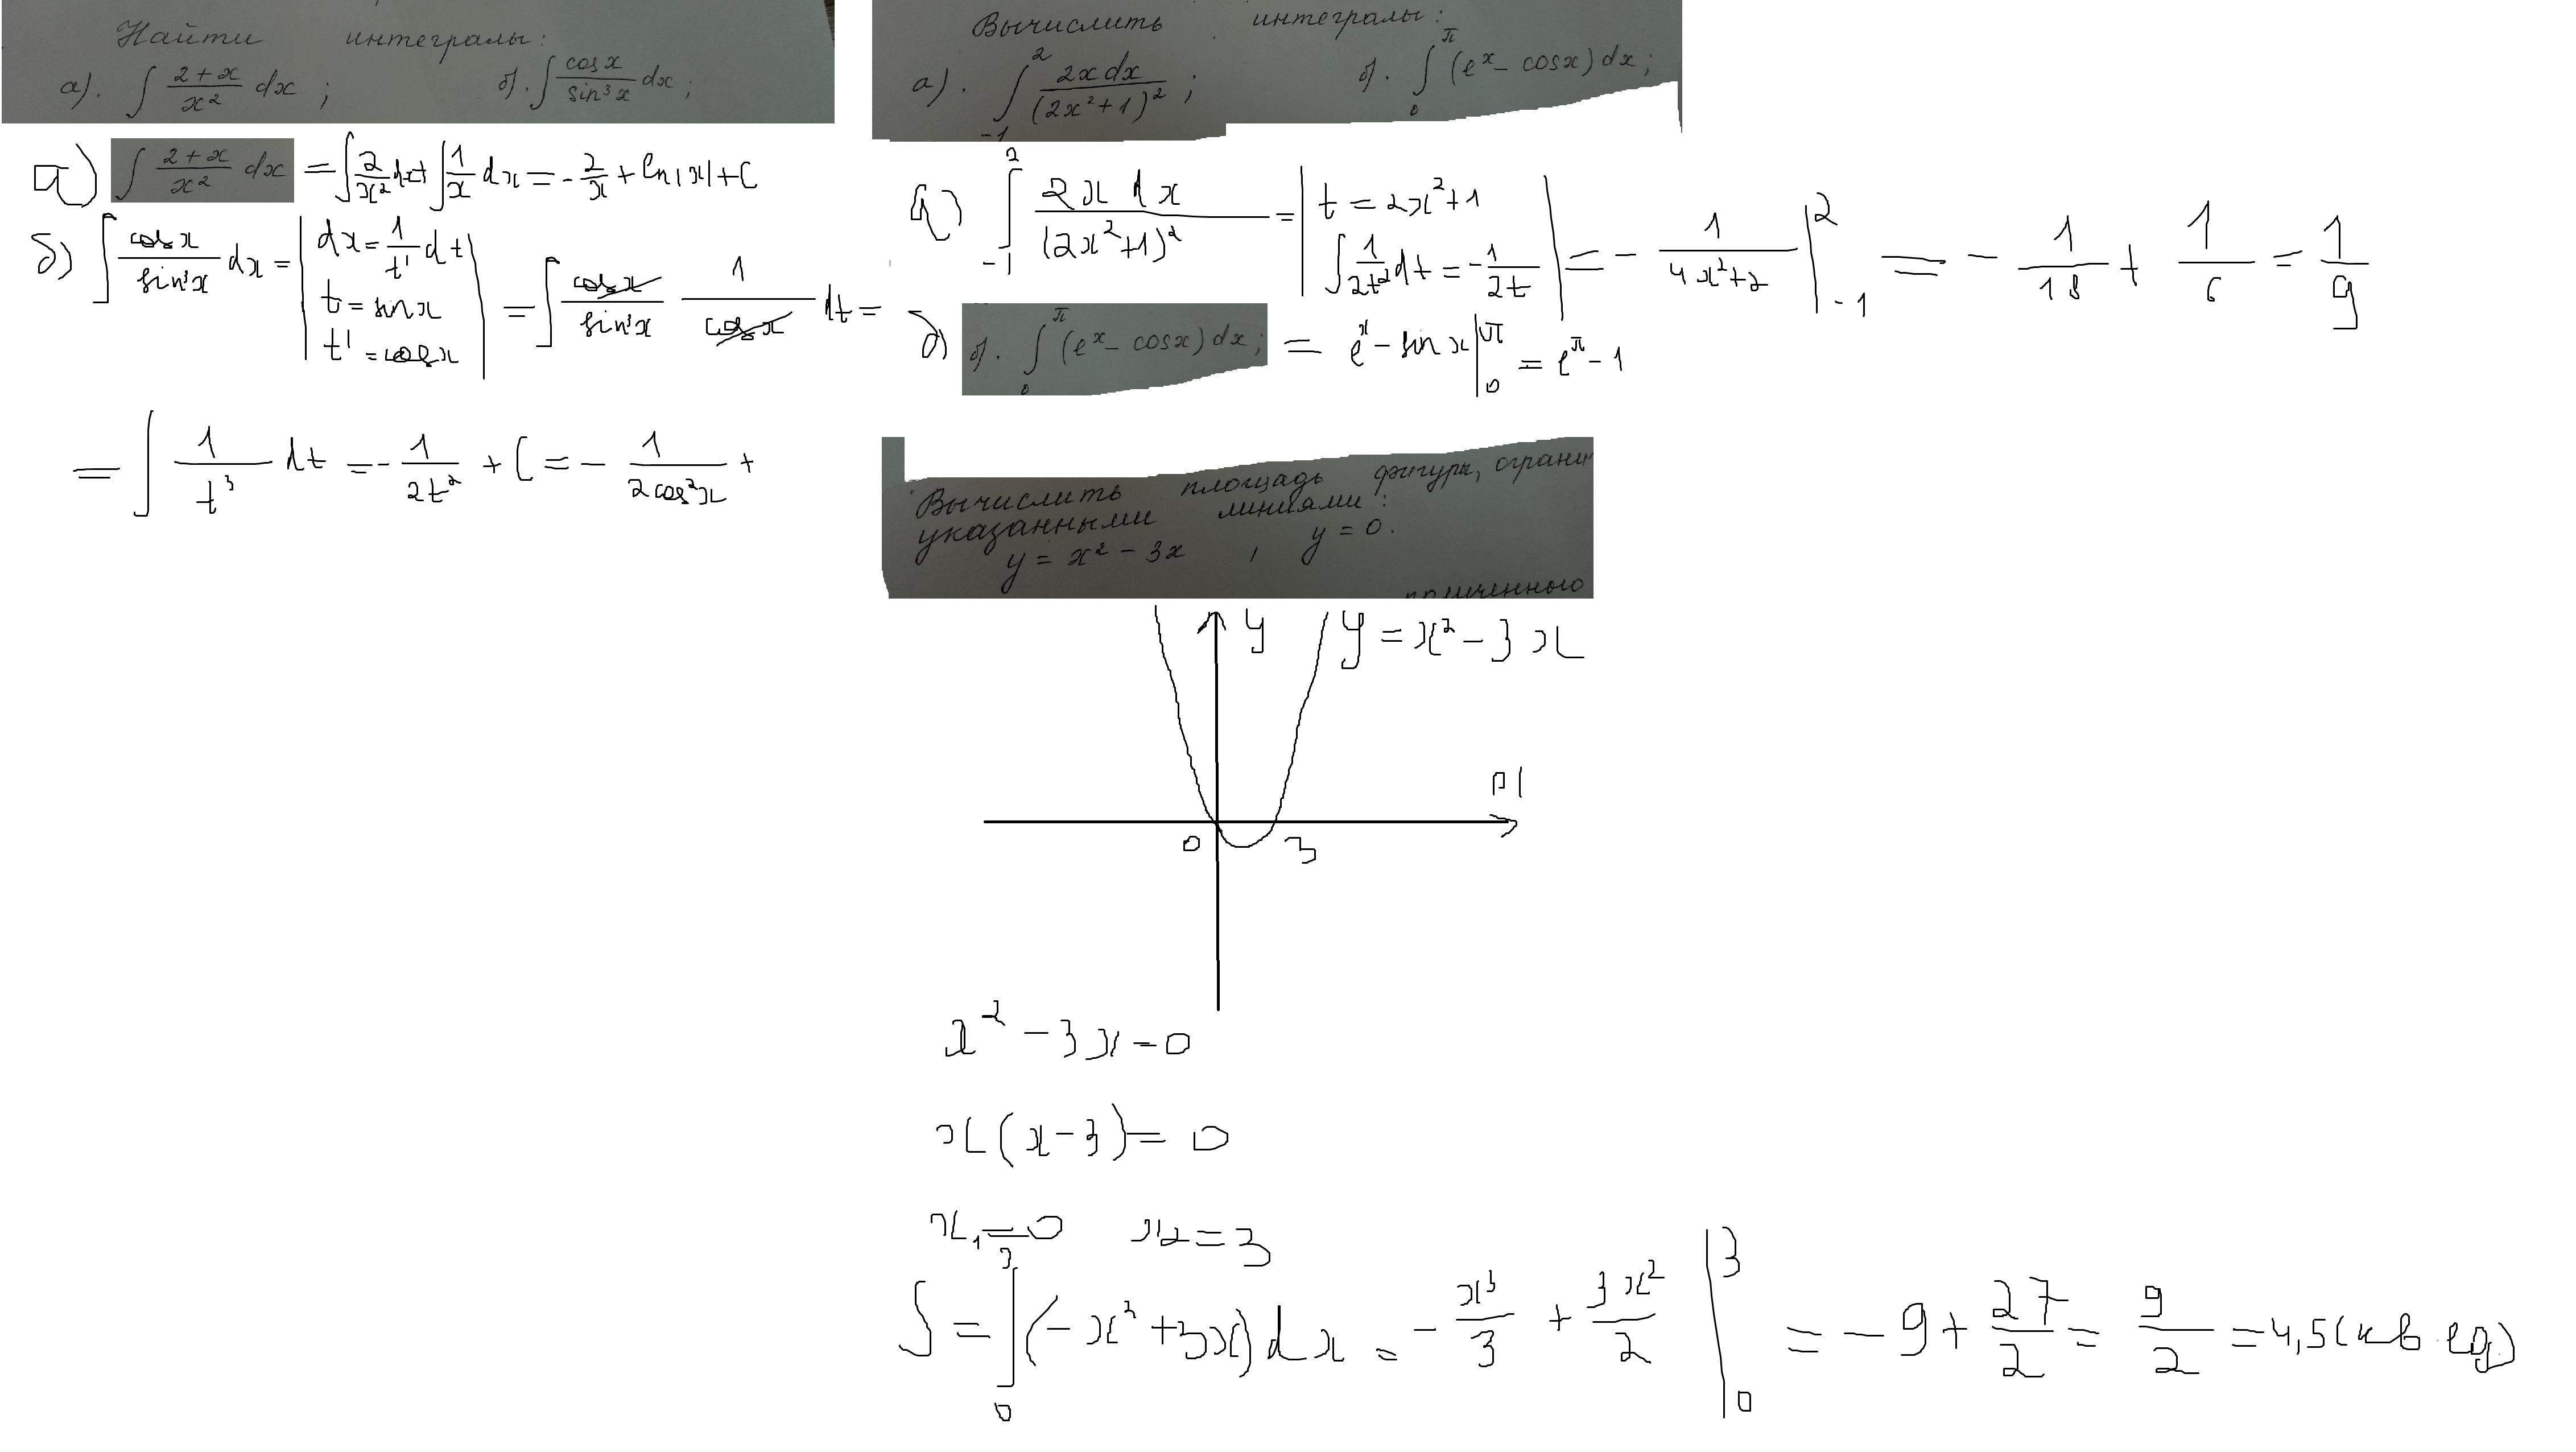 Найти интегралы:
а). ∫ (2+x)/x² dx ; б). ∫ cos x/sin³x dx ;
а) ∫ (2+x)/x² dx = ∫ 2/x² dx + ∫ 1/x dx = - 2/x + ln|x| + C
б) ∫ cos x/sin³x dx = | dx = 1/t' dt
t = sin x
t' = cos x | = ∫ cos x/sin³x 1/cos x dt =
= ∫ 1/t³ dt = - 1/2t² + C = - 1/2cos²x +
Вычислить интегралы:
а). ∫₋₁² 2x dx/(2x²+1)² ; б). ∫₀^π (eˣ - cosx) dx ;
а) ∫₋₁² 2x dx/(2x²+1)² = | t = 2x²+1
∫ 1/2t² dt = - 1/2t | = - 1/4x²+2 |₋₁² = - 1/18 + 1/6 = 1/9
б) б). ∫₀^π (eˣ - cosx) dx ; = eˣ - sin x |₀^π = e^π - 1
Вычислить площадь фигуры, ограни
указанными линиями:
y = x² - 3x , y = 0.
y y = x² - 3x
0 3
x² - 3x = 0
x(x-3) = 0
x₁ = 0 x₂ = 3
S = ∫₀³ (-x² + 3x) dx = - x³/3 + 3x²/2 |₀³ = - 9 + 27/2 = 9/2 = 4,5 (кв ед)